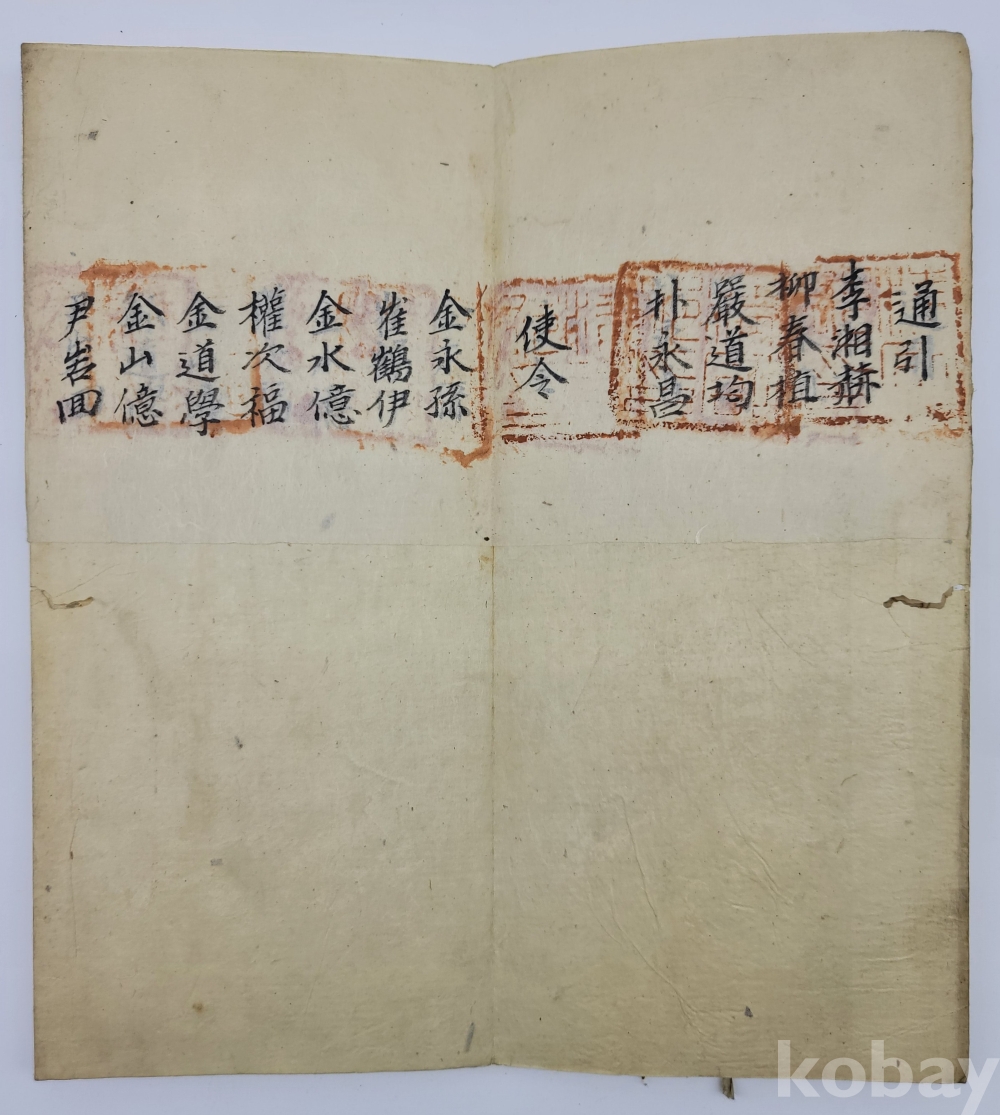 通引
李湘馪
柳春植
嚴道均
朴永昌
使令
金永孫
崔鶴伊
金水億
權次福
金道學
金山億
尹岩回
kobay